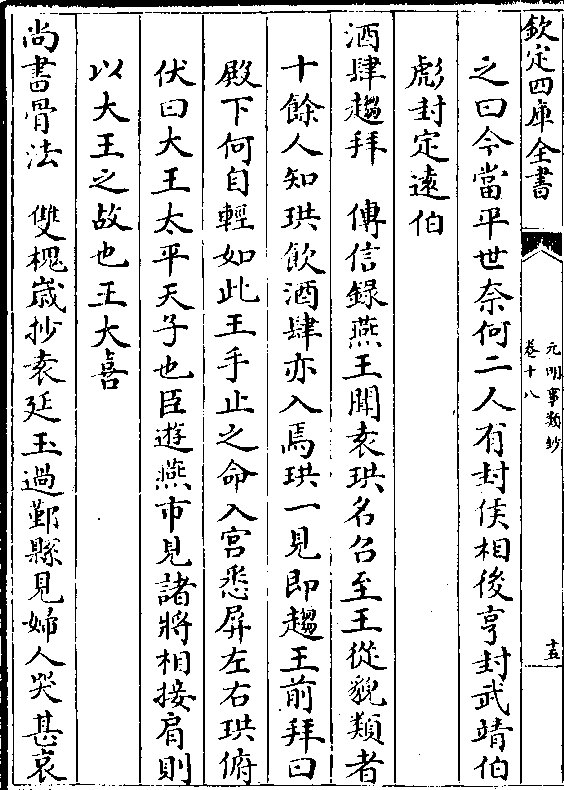 欽定四庫全書
元明事類鈔
卷十八
十五
之曰今當平世奈何二人有封侯相後亨封武靖伯
彪封定遠伯
酒肆趨拜　傳信錄燕王聞袁珙名召至王從貌類者
十餘人知珙飲酒肆亦入焉珙一見即趨王前拜曰
殿下何自輕如此王手止之命入宮悉屏左右珙俯
伏曰大王太平天子也臣遊燕市見諸將相接肩則
以大王之故也王大喜
尚書骨法　雙槐歲抄袁廷玉過鄞縣見婦人哭甚哀